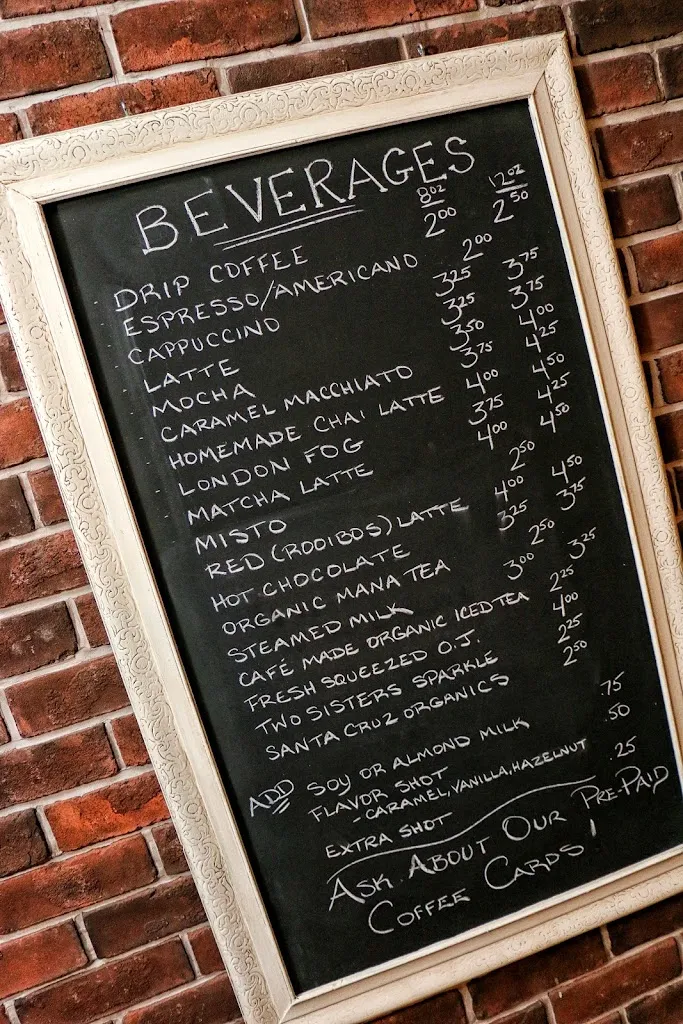 BEVERAGES
8oz 12oz
DRIP COFFEE 2.00 2.50
ESPRESSO/AMERICANO 2.00
CAPPUCCINO 3.25 3.75
LATTE 3.25 3.75
MOCHA 3.50 4.00
CARAMEL MACCHIATO 3.75 4.25
HOMEMADE CHAI LATTE 4.00 4.50
LONDON FOG 3.75 4.25
MATCHA LATTE 4.00 4.50
MISTO 2.50
RED (ROOIBOS) LATTE 4.00 4.50
HOT CHOCOLATE 3.25 3.75
ORGANIC MANA TEA 2.50
STEAMED MILK 3.00 3.25
CAFÉ MADE ORGANIC ICED TEA 2.25
FRESH SQUEEZED O.J. 4.00
TWO SISTERS SPARKLE 2.25
SANTA CRUZ ORGANICS 2.50
ADD SOY OR ALMOND MILK .75
FLAVOR SHOT .50
-CARAMEL, VANILLA, HAZELNUT
EXTRA SHOT .25
ASK ABOUT OUR PRE-PAID
COFFEE CARDS!